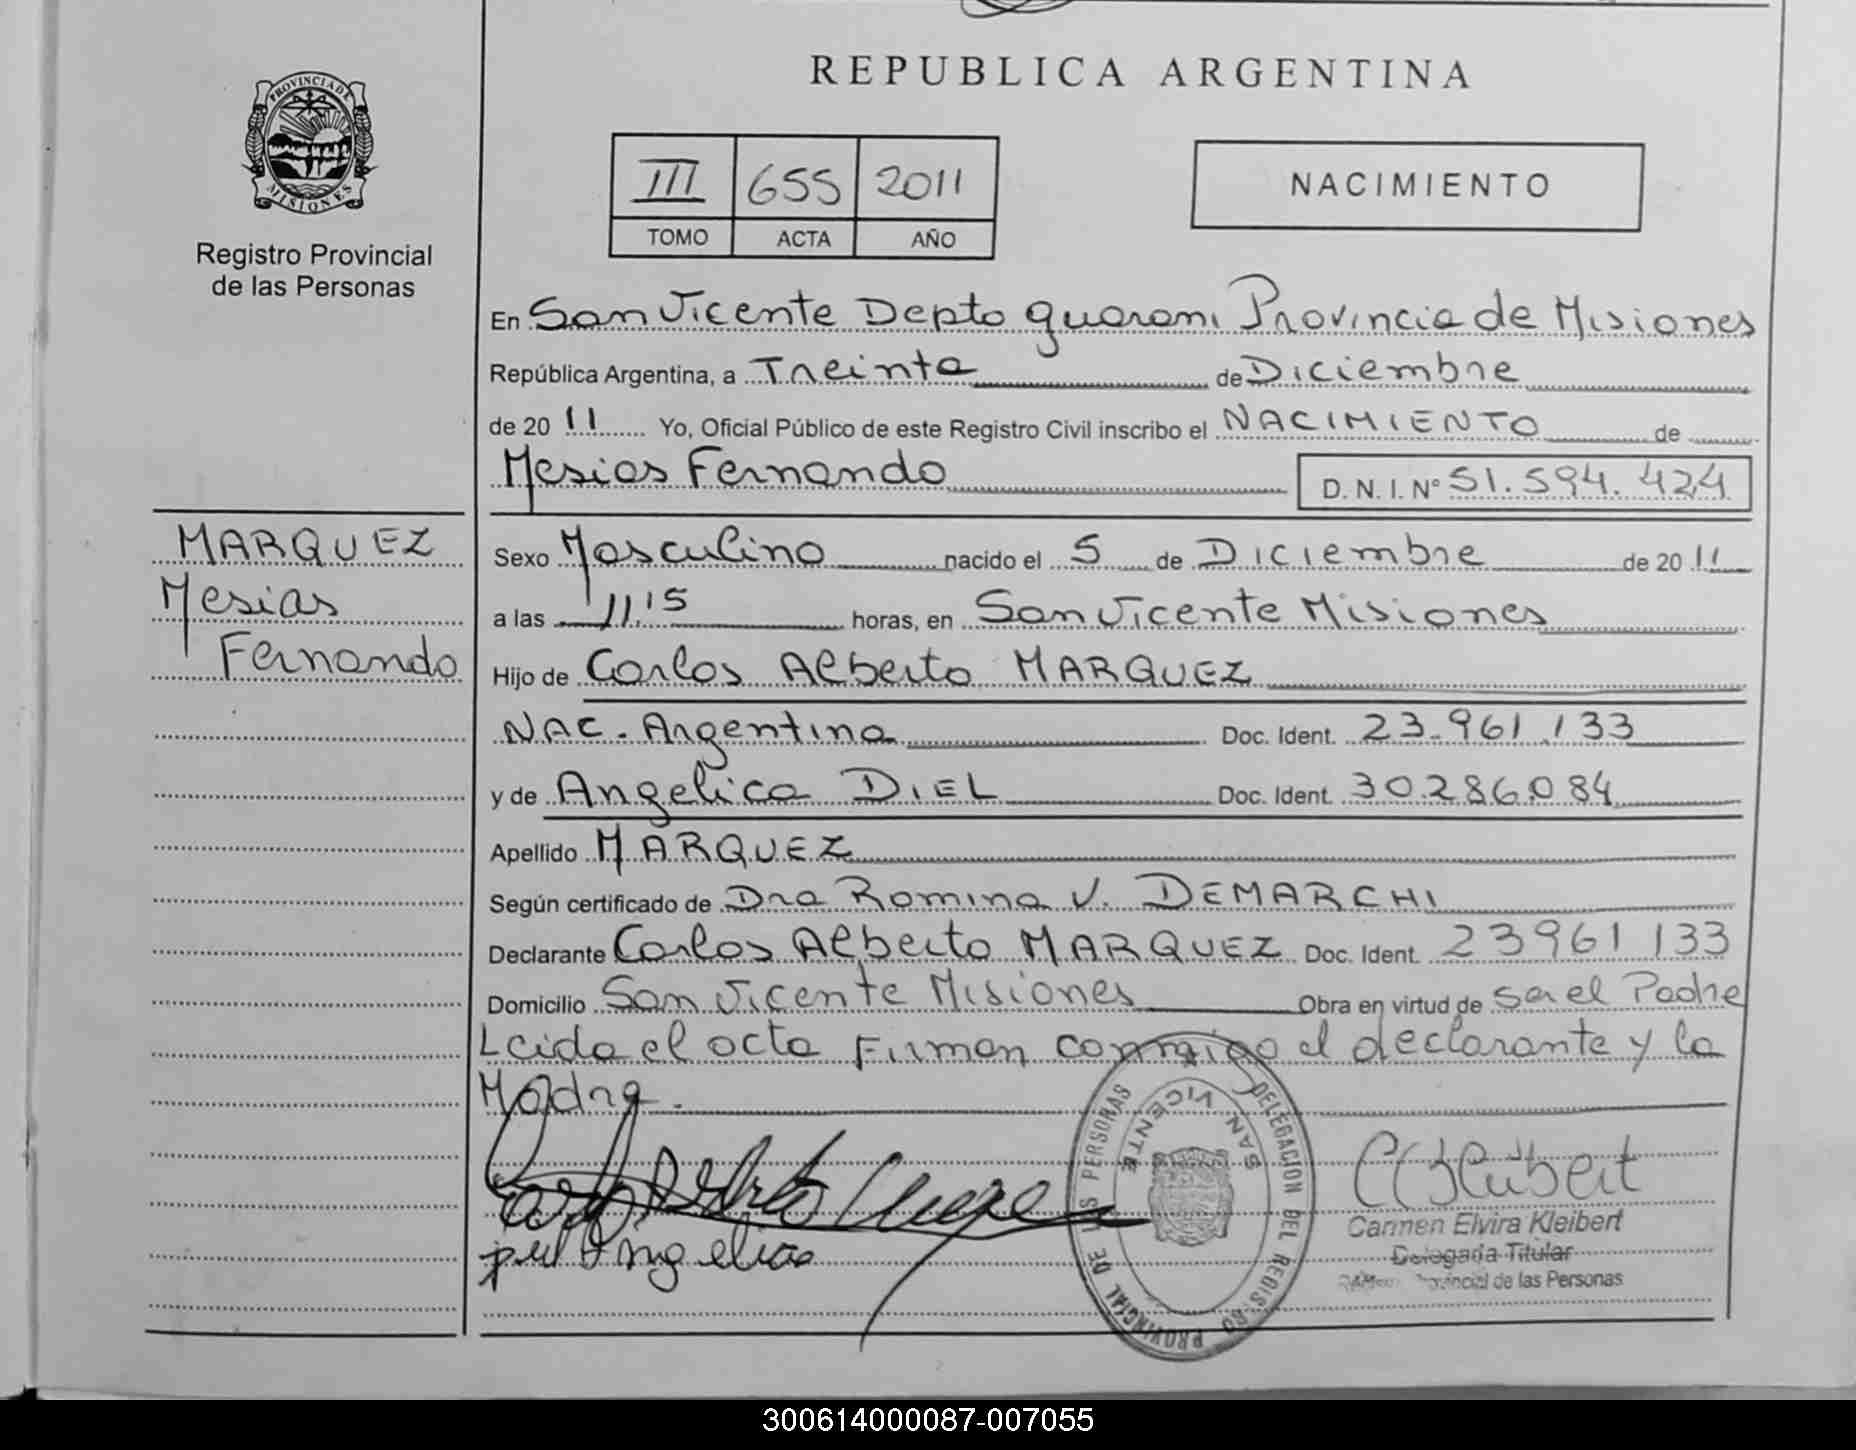 PROVINCIA DE
MISIONES
Registro Provincial
de las Personas
MARQUEZ
Mesias
Fernando
REPUBLICA ARGENTINA
III 655 2011
TOMO ACTA AÑO
NACIMIENTO
En San Vicente Depto guarani Provincia de Misiones
República Argentina, a Treinta de Diciembre
de 20 11 Yo, Oficial Público de este Registro Civil inscribo el NACIMIENTO de
Mesias Fernando D. N. I. Nº 51.594.424
Sexo Masculino nacido el 5 de Diciembre de 20 11
a las 11,15 horas, en San Vicente Misiones
Hijo de Carlos Alberto MARQUEZ
NAC. Argentina Doc. Ident. 23.961.133
y de Angelica DIEL Doc. Ident. 30.286.084
Apellido MARQUEZ
Según certificado de Dra Romina V. DEMARCHI
Declarante Carlos Alberto MARQUEZ Doc. Ident. 23961133
Domicilio San Vicente Misiones Obra en virtud de ser el Padre
Leida el acta Firman conmigo el declarante y la
Madre.
DELEGACION DEL REGISTRO PROVINCIAL DE LAS PERSONAS
SAN VICENTE
Angelica
Carmen Elvira Kleibert
Delegada Titular
Provincial de las Personas
300614000087-007055